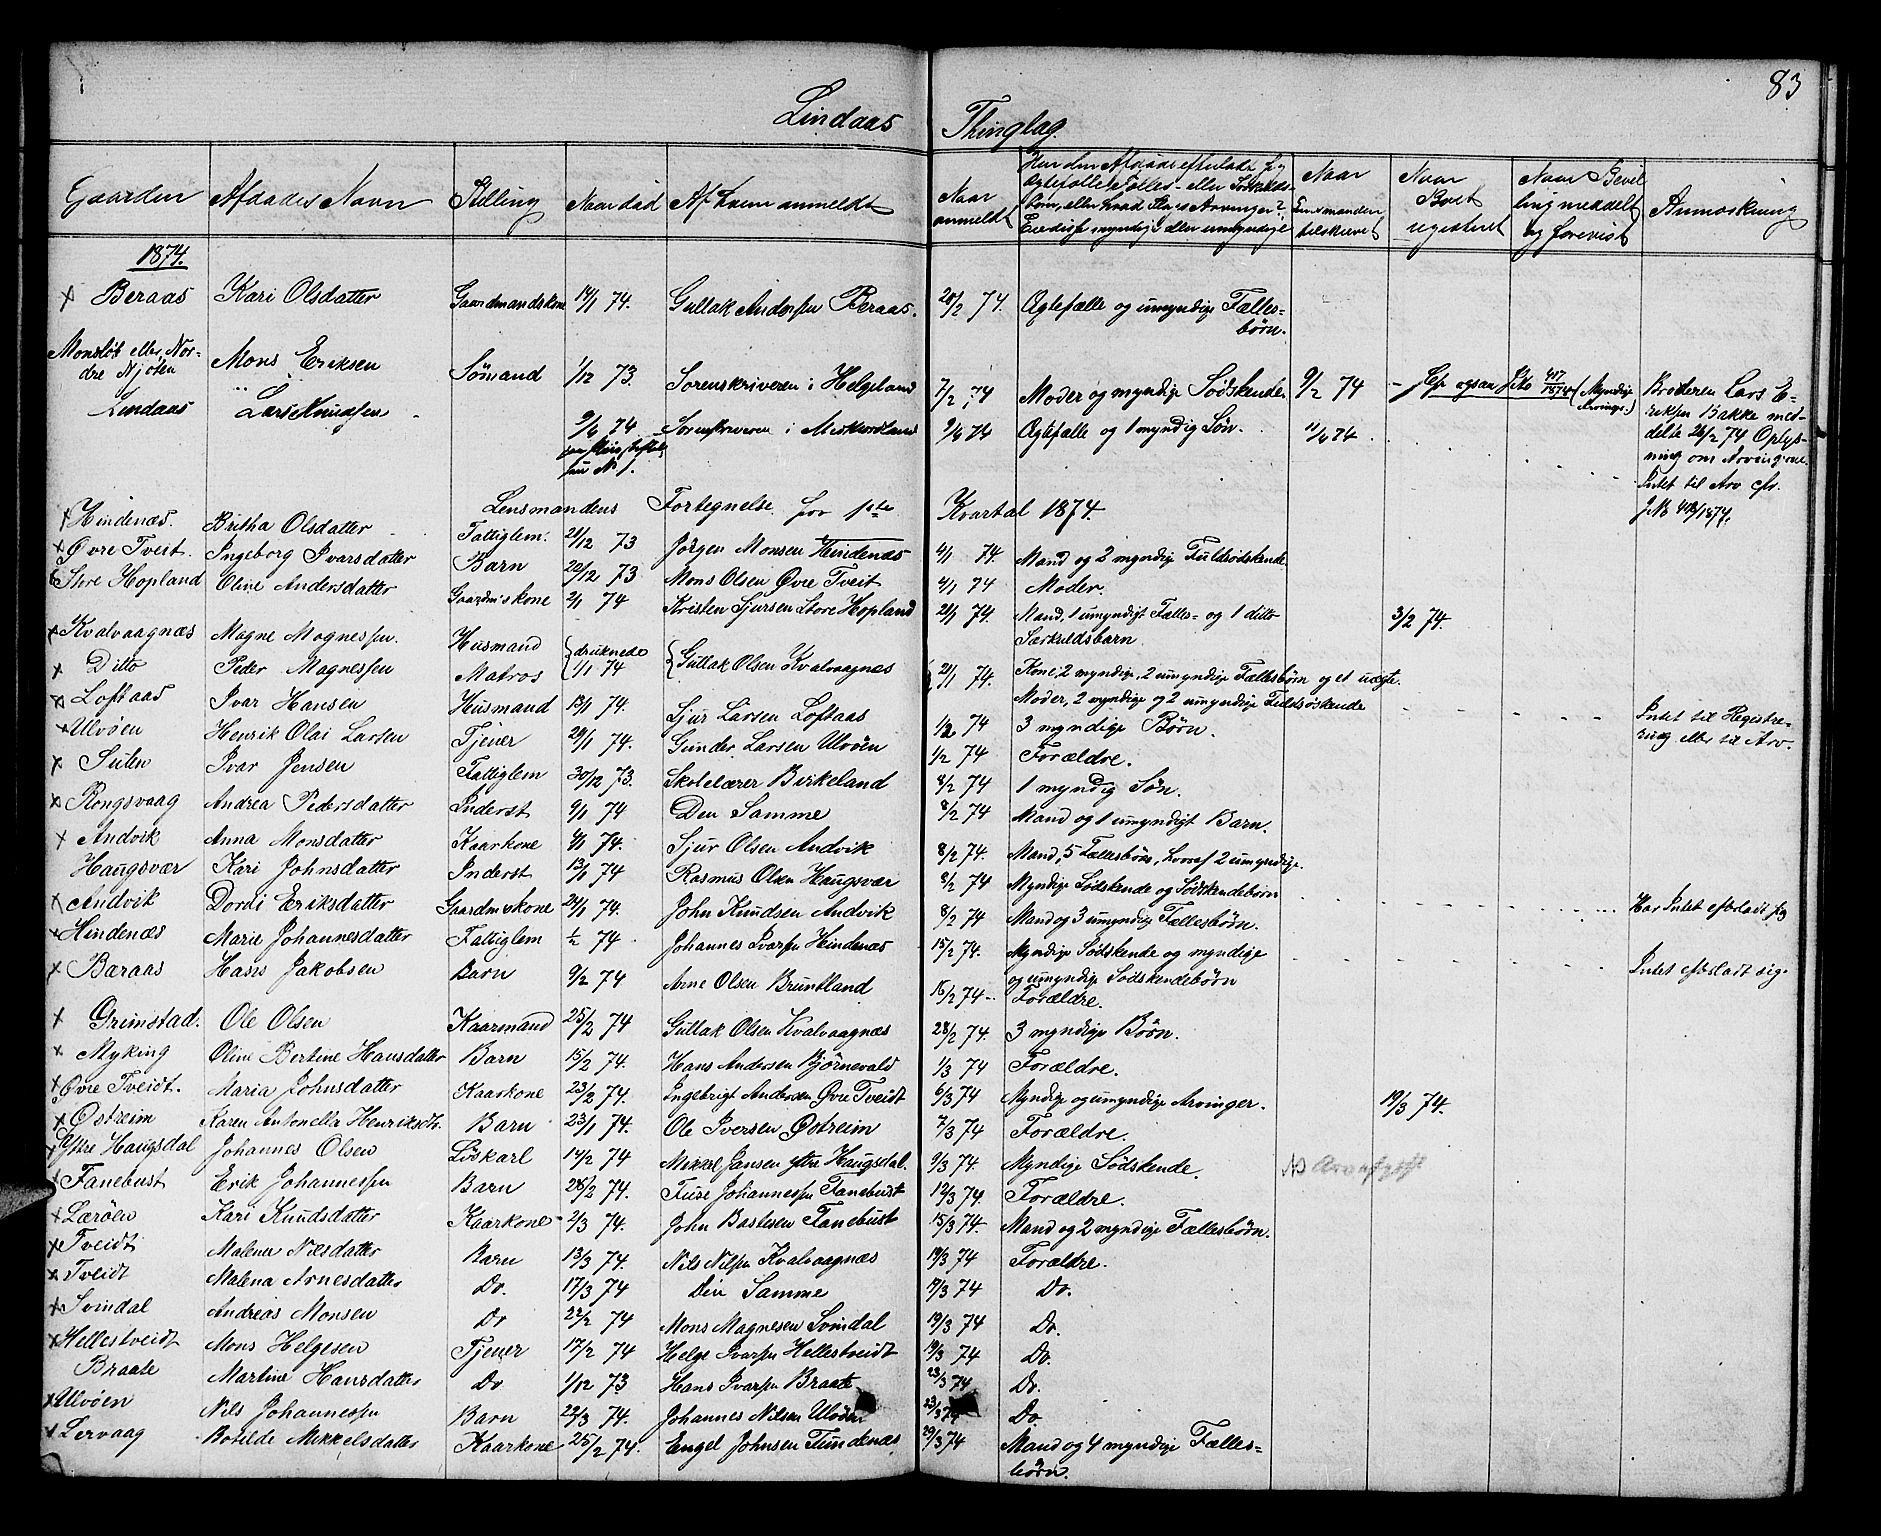 83
Lindaas Thinglag.
Gaarden Afdødes Navn Stilling Naar død Af hvem anmeldt Naar anmeldt Naar Lensmanden tilskrevet Naar Boet registreret Naar Bevilling meddelt og forevist Anmærkning
1874.
x Beraas Kari Olsdatter Gaardmandskone 14/1 74. Gullak Andersen Beraas. 20/2 74. Ægtefælle og umyndige Fælles-
børn.
Monsløt eller Nor-
dre Njøten Mons Eriksen Sømand 1/12 73. Sorenskriveren i Helgeland 7/2 74 Moder og myndige Sødskende. 9/2 74 (Myndige Arvings.) Broderen Lars E-
riksen Bakke med-
delte 26/2 74 Oplys-
ning om Arvingerne.
Lindaas Lars Knudsen 9/6 74 Sorenskriveren i 9/6 74 Ægtefælle og 1 myndig Søn. 11/6 74.
Intet til Arv cfr.
Lensmandens Fortegnelse for 1ste Kvartal 1874.
x Hindenæs. Britha Olsdatter Fattiglem. 21/12 73 Jørgen Monsen Hindenæs 4/1 74. Mand og 2 myndige Fuldsødskende
x Øvre Tveit. Ingeborg Ivarsdatter Barn 22/12 73 Mons Olsen Øvre Tveit 4/1 74 Moder.
Store Hopland Oline Andersdatter Gaardmskone 2/1 74 Kristen Sjursen Store Hopland 21/1 74. Mand, 1 umyndigt Fælles- og 1 ditto 3/2 74.
Særkuldsbarn
x Kvalvaagnæs Magne Magnessen. Husmand druknede Gullak Olsen Kvalvaagnæs 21/1 74. Kone, 2 myndige, 2 umyndige Fællesbørn og et uægte.
x Ditto Peder Magnessen Matros 1/1 74 Moder, 2 myndige og 2 umyndige Fuldsøskende
x Loftaas Ivar Hansen Husmand 13/1 74. Sjur Larsen Loftaas 1/2 74 3 myndige Børn. Intet til Registre-
ring eller til Arv.
x Ulvøen Henrik Olai Larsen Tjener 29/1 74. Gunder Larsen Ulvøen 1/2 74 Forældre.
x Sulen Ivar Jensen Fattiglem 30/12 73. Skolelærer Birkeland 8/2 74 1 myndig Søn.
x Rongsvaag Andrea Pedersdatter Inderst 9/1 74 Den Samme 8/2 74 Mand og 1 umyndigt Barn.
x Andvik Anna Monsdatter Kaarkone 4/1 74. Sjur Olsen Andvik 8/2 74. Mand, 5 Fællesbørn, hvoraf 2 umyndige.
Haugsvær Kari Johnsdatter Inderst 13/1 74 Rasmus Olsen Haugsvær 8/2 74 Myndige Sødskende og Sødskendebørn Har Intet efterladt sig
x Andvik Dordi Eriksdatter Gaardmskone 24/1 74. John Knudsen Andvik 8/2 74 Mand og 3 umyndige Fællesbørn.
x Hindenæs Marie Johannesdatter Fattiglem 1/2 74 Johannes Ivarsen Hindenæs 15/2 74. Myndige Sødskende og myndige Intet efterladt sig
og umyndige Sødskendebørn
x Bæraas Hans Jakobsen Barn 9/2 74 Arne Olsen Bruntland 16/2 74 Forældre.
x Grimstad. Ole Olsen Kaarmand 25/2 74 Gullak Olsen Kvalvaagnæs 28/2 74. 3 myndige Børn.
x Myking Oline Bertine Hansdatter Barn 15/2 74. Hans Andersen Bjørnevald 1/3 74 Forældre.
x Øvre Tveidt. Maria Johnsdatter Kaarkone 23/2 74. Ingebrigt Andersen Øvre Tveidt 6/3 74 Myndige og umyndige Arvinger. 19/3 74.
x Østreim Karen Antonella Henriksdtr. Barn 23/1 74. Ole Iversen Østreim 7/3 74 Forældre.
x Ytre Haugsdal Johannes Olsen Løskarl 14/2 74 Mikkel Jansen ytre Haugsdal. 9/3 74 Myndige Sødskende.
x Fanebust Erik Johannessen Barn 28/2 74. Ture Johannessen Fanebust 12/3 74. Forældre.
x Lærøen Kari Knudsdatter Kaarkone 2/3 74. John Bastesen Fanebust 15/3 74. Mand og 2 myndige Fællesbørn.
x Tveidt Malena Nilsdatter Barn 13/3 74. Nils Nilsen Kvalvaagnæs 19/3 74 Forældre.
x Tveidt Malena Arnesdatter Do. 17/3 74 Den Samme 19/3 74 Do.
x Svindal Andreas Monsen Do 22/2 74 Mons Magnesen Svindal 19/3 74 Do.
x Hellestveidt Mons Helgesen Tjener 17/2 74 Helge Ivarsen Hellestveidt 19/3 74 Do.
Braate Martine Hansdatter Do 1/12 73 Hans Ivarsen Braate 23/3 74 Do.
x Ulvøen Nils Johannessen Barn 22/3 74. Johannes Nilsen Ulvøen 23/3 74 Do
x Lervaag Botilde Mikkelsdatter Kaarkone 25/2 74. Engel Johnsen Tundenæs 29/3 74 Mand og 4 myndige Fælles-
børn.